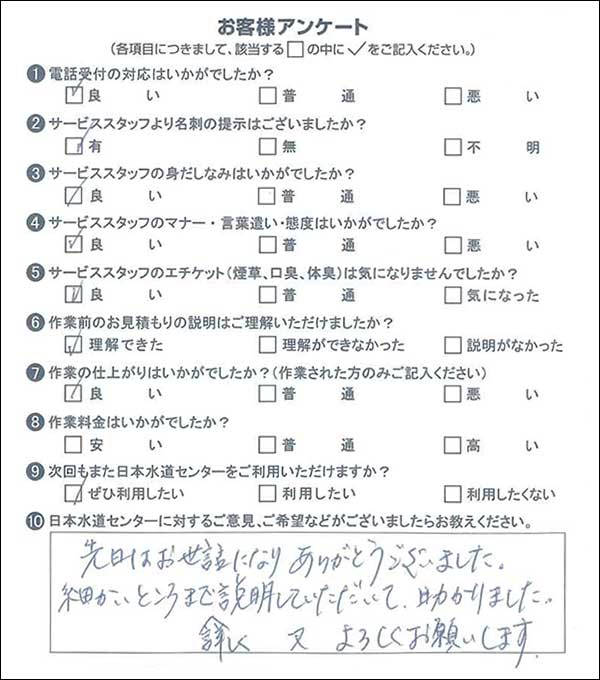 お客様アンケート
(各項目につきまして、該当する□の中に✓をご記入ください。)
❶ 電話受付の対応はいかがでしたか?
☑良い □普通 □悪い
❷ サービススタッフより名刺の提示はございましたか?
☑有 □無 □不明
❸ サービススタッフの身だしなみはいかがでしたか?
☑良い □普通 □悪い
❹ サービススタッフのマナー・言葉遣い・態度はいかがでしたか?
☑良い □普通 □悪い
❺ サービススタッフのエチケット(煙草、口臭、体臭)は気になりませんでしたか?
☑良い □普通 □気になった
❻ 作業前のお見積もりの説明はご理解いただけましたか?
☑理解できた □理解ができなかった □説明がなかった
❼ 作業の仕上がりはいかがでしたか?(作業された方のみご記入ください)
☑良い □普通 □悪い
❽ 作業料金はいかがでしたか?
□安い □普通 □高い
❾ 次回もまた日本水道センターをご利用いただけますか?
☑ぜひ利用したい □利用したい □利用したくない
❿ 日本水道センターに対するご意見、ご希望などがございましたらお教えください。
先日はお世話になりありがとうございました。
細かいところまで説明していただいて、助かりました。
詳しく 又 よろしくお願いします